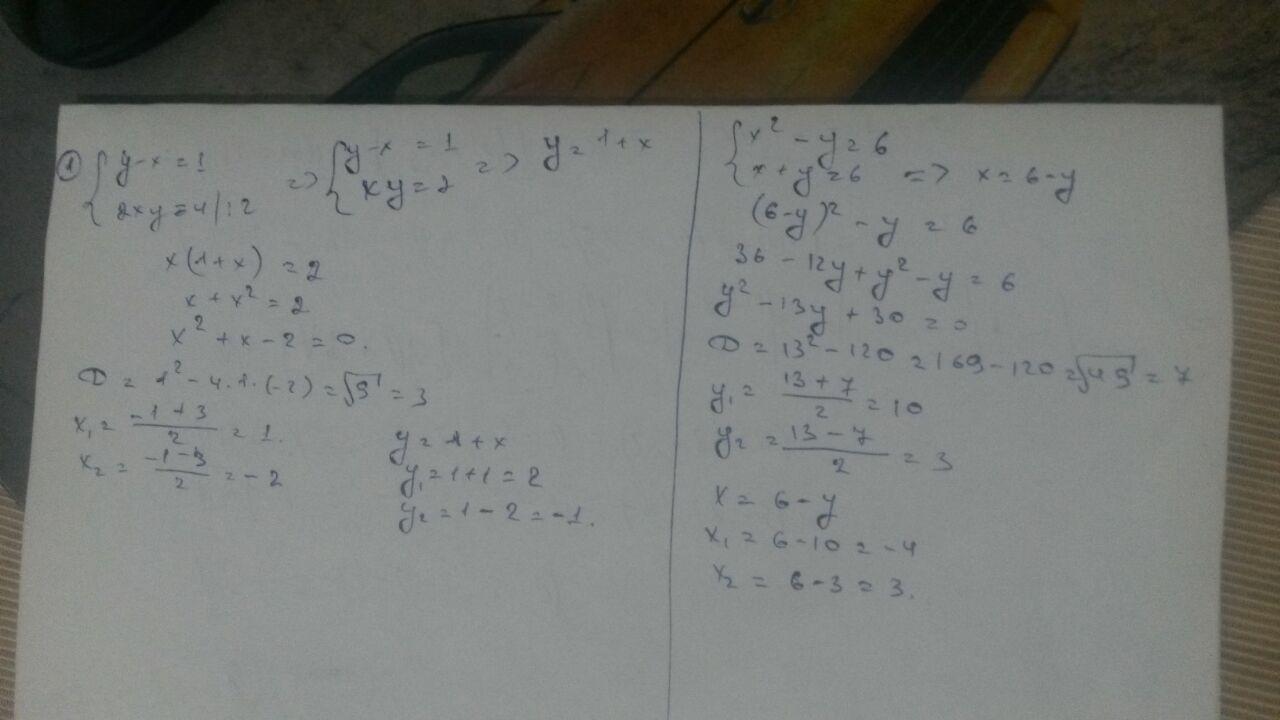 ① { y-x=1 => { y-x=1 => y=1+x
2xy=4 |:2 xy=2
x(1+x)=2
x+x²=2
x²+x-2=0.
D=1²-4·1·(-2)=√9=3
x₁=(-1+3)/2=1.
x₂=(-1-3)/2=-2
y=1+x
y₁=1+1=2
y₂=1-2=-1.
{ x²-y=6
x+y=6 => x=6-y
(6-y)²-y=6
36-12y+y²-y=6
y²-13y+30=0
D=13²-120=169-120=√49=7
y₁=(13+7)/2=10
y₂=(13-7)/2=3
x=6-y
x₁=6-10=-4
x₂=6-3=3.